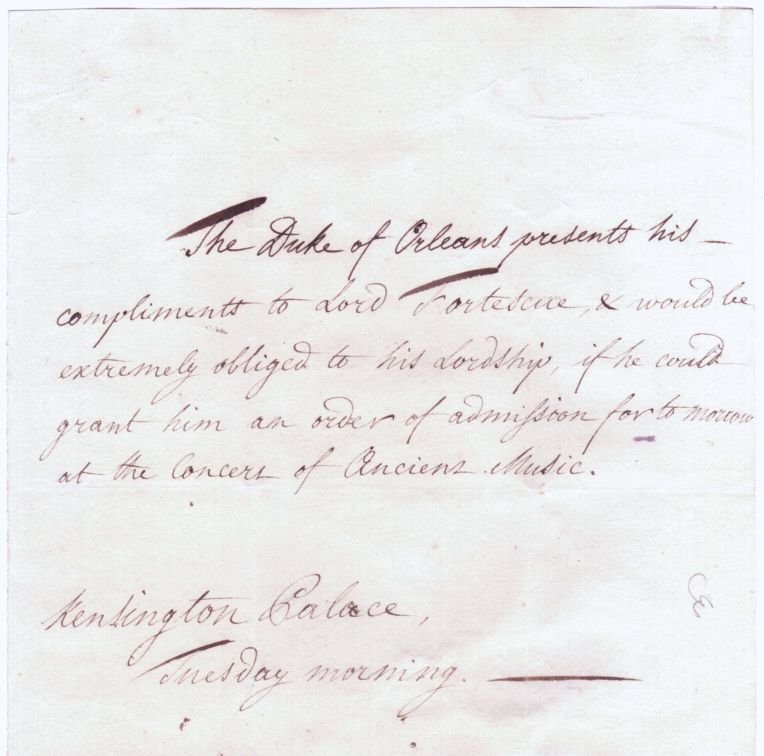 The Duke of Orleans presents his –
compliments to Lord Fortescue, & would be
extremely obliged to his Lordship, if he could
grant him an order of admiſsion for to morrow
at the Concert of Ancient Music.
Kensington Palace,
Tuesday morning. —